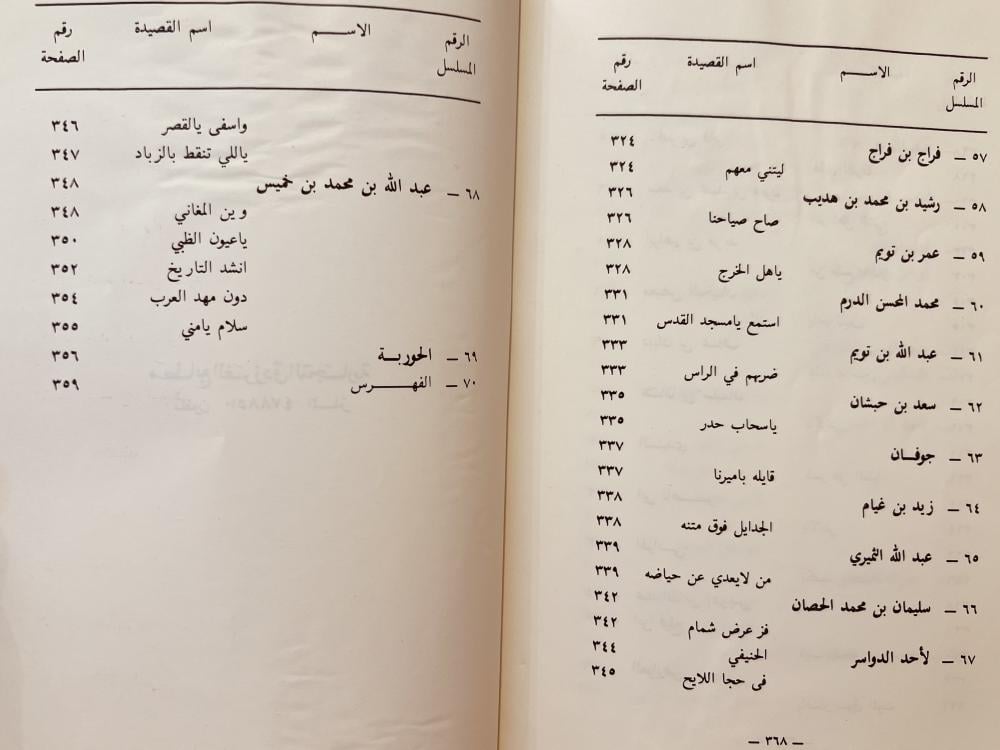 الرقم المسلسل الاســـم اسم القصيدة رقم الصفحة
٥٧ ـ فراج بن فراج ٣٢٤
ليتني معهم ٣٢٤
٥٨ ـ رشيد بن محمد بن هديب ٣٢٦
صاح صياحنا ٣٢٦
٥٩ ـ عمر بن تويم ٣٢٨
ياهل الخرج ٣٢٨
٦٠ ـ محمد المحسن الدرم ٣٣١
استمع يامسجد القدس ٣٣١
٦١ ـ عبد الله بن تويم ٣٣٣
ضربهم في الراس ٣٣٣
٦٢ ـ سعد بن حبشان ٣٣٥
ياسحاب حدر ٣٣٥
٦٣ ـ جوفـان ٣٣٧
قايله باميرنا ٣٣٧
٦٤ ـ زيد بن غيام ٣٣٨
الجدايل فوق متنه ٣٣٨
٦٥ ـ عبد الله الثميري ٣٣٩
من لايعدي عن حياضه ٣٣٩
٦٦ ـ سليمان بن محمد الحصان ٣٤٢
فز عرض شمام ٣٤٢
الحنيفي ٣٤٤
٦٧ ـ لأحد الدواسر
فى حجا اللايح ٣٤٥
ـ ٣٦٨ ـ
الرقم المسلسل الاســـم اسم القصيدة رقم الصفحة
واسفى يالقصر ٣٤٦
ياللي تنقط بالزباد ٣٤٧
٦٨ ـ عبد الله بن محمد بن خميس ٣٤٨
وين المغاني ٣٤٨
ياعيون الظبي ٣٥٠
انشد التاريخ ٣٥٢
دون مهد العرب ٣٥٤
سلام يامني ٣٥٥
٦٩ ـ الحوربـة ٣٥٦
٧٠ ـ الفهـــرس ٣٥٩